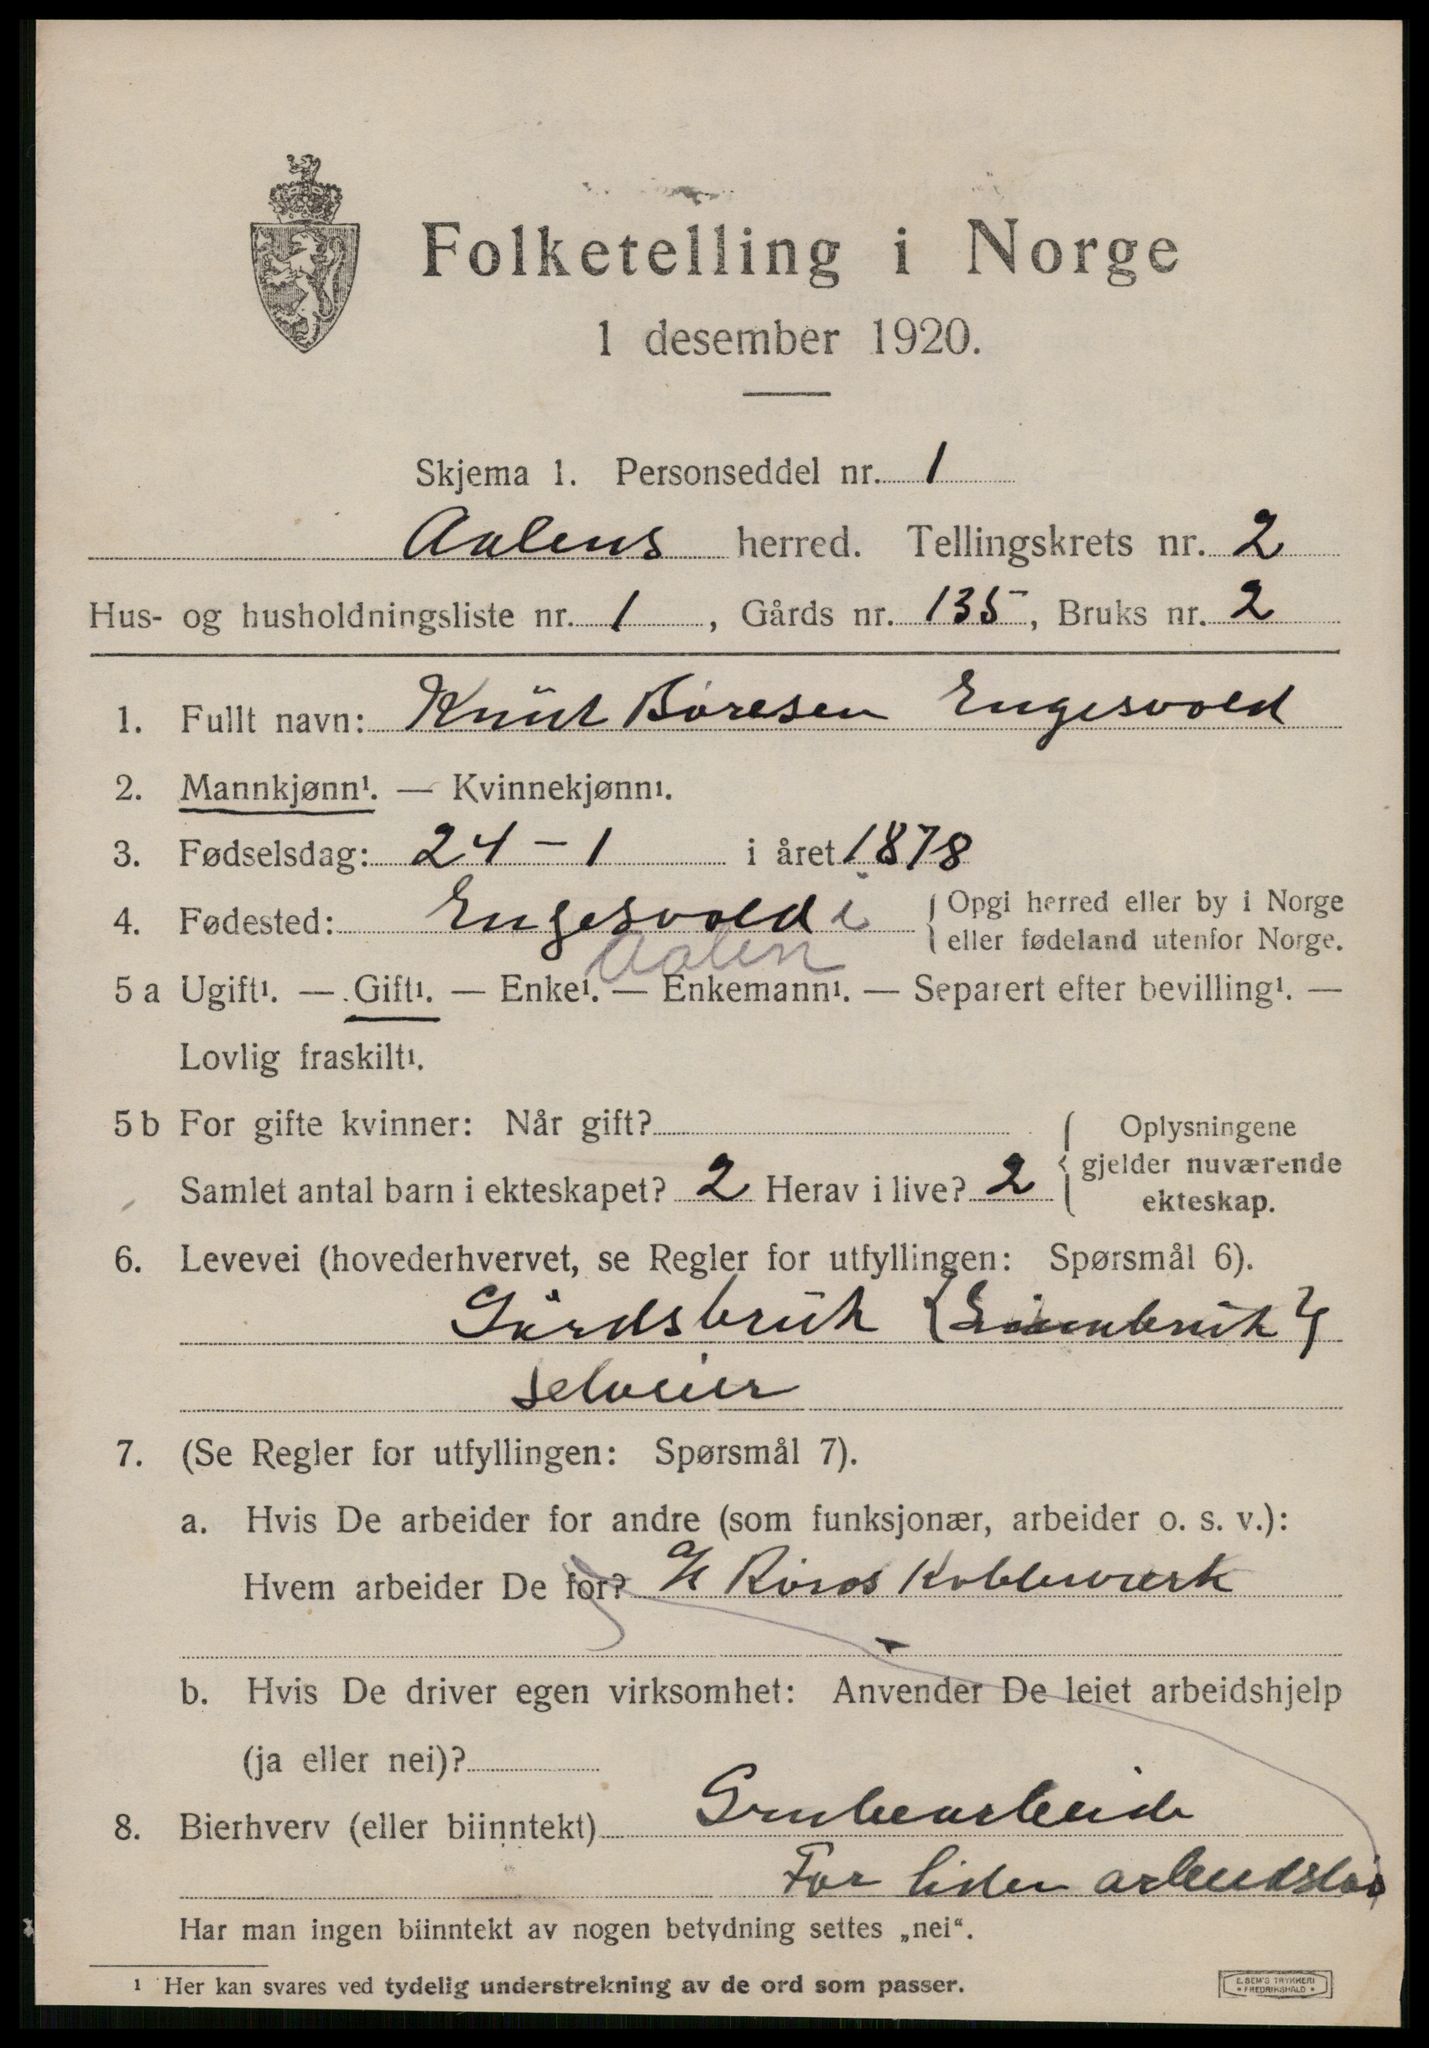 Folketelling i Norge
1 desember 1920.
Skjema 1. Personseddel nr. 1
Aalens herred. Tellingskrets nr. 2
Hus- og husholdningsliste nr. 1, Gårds nr. 135, Bruks nr. 2
1. Fullt navn: Knut Boresen Engesvold
2. Mannkjønn¹. — Kvinnekjønn¹.
3. Fødselsdag: 24 - 1 i året 1878
4. Fødested: Engesvold i {Opgi herred eller by i Norge
eller fødeland utenfor Norge.
Aalen
5 a Ugift¹. — Gift¹. — Enke¹. — Enkemann¹. — Separert efter bevilling¹. —
Lovlig fraskilt¹.
5 b For gifte kvinner: Når gift? {Oplysningene
gjelder nuværende
Samlet antal barn i ekteskapet? 2 Herav i live? 2
ekteskap.
6. Levevei (hovederhvervet, se Regler for utfyllingen: Spørsmål 6).
Gårdsbruk
selveier
7. (Se Regler for utfyllingen: Spørsmål 7).
a. Hvis De arbeider for andre (som funksjonær, arbeider o. s. v.):
Hvem arbeider De for? A/S Røros Kobberværk
b. Hvis De driver egen virksomhet: Anvender De leiet arbeidshjelp
(ja eller nei)?
8. Bierhverv (eller biinntekt) Grubearbeide
For tiden arbeidsløs
Har man ingen biinntekt av nogen betydning settes „nei“.
¹ Her kan svares ved tydelig understrekning av de ord som passer.
E. SEM'S TRYKKERI
FREDRIKSHALD